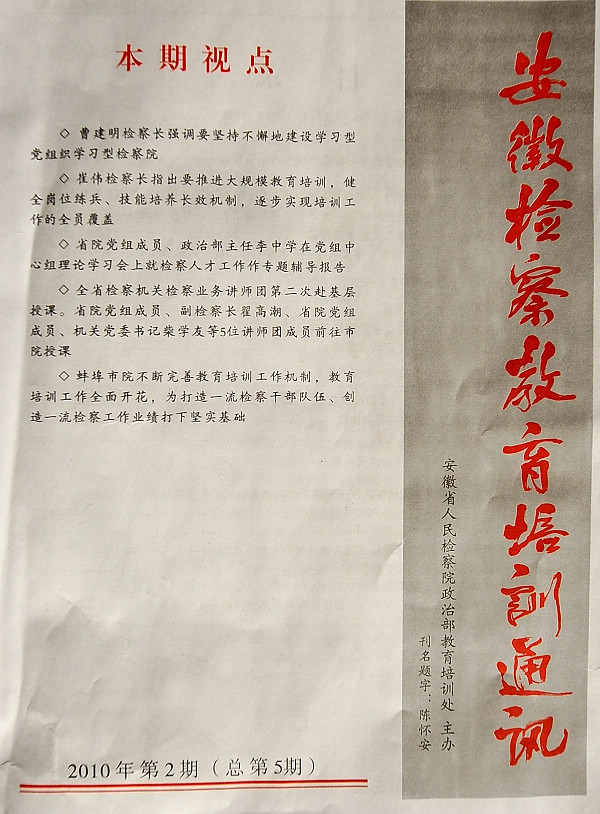 本期视点
◇ 曹建明检察长强调要坚持不懈地建设学习型
党组织学习型检察院
◇ 崔伟检察长指出要推进大规模教育培训，健
全岗位练兵、技能培养长效机制，逐步实现培训工
作的全员覆盖
◇ 省院党组成员、政治部主任李中学在党组中
心组理论学习会上就检察人才工作作专题辅导报告
◇ 全省检察机关检察业务讲师团第二次赴基层
授课。省院党组成员、副检察长翟高潮、省院党组
成员、机关党委书记柴学友等5位讲师团成员前往市
院授课
◇ 蚌埠市院不断完善教育培训工作机制，教育
培训工作全面开花，为打造一流检察干部队伍、创
造一流检察工作业绩打下坚实基础
2010年第2期（总第5期）
安徽检察教育培訓通讯
安徽省人民检察院政治部教育培训处 主办
刊名题字：陈怀安